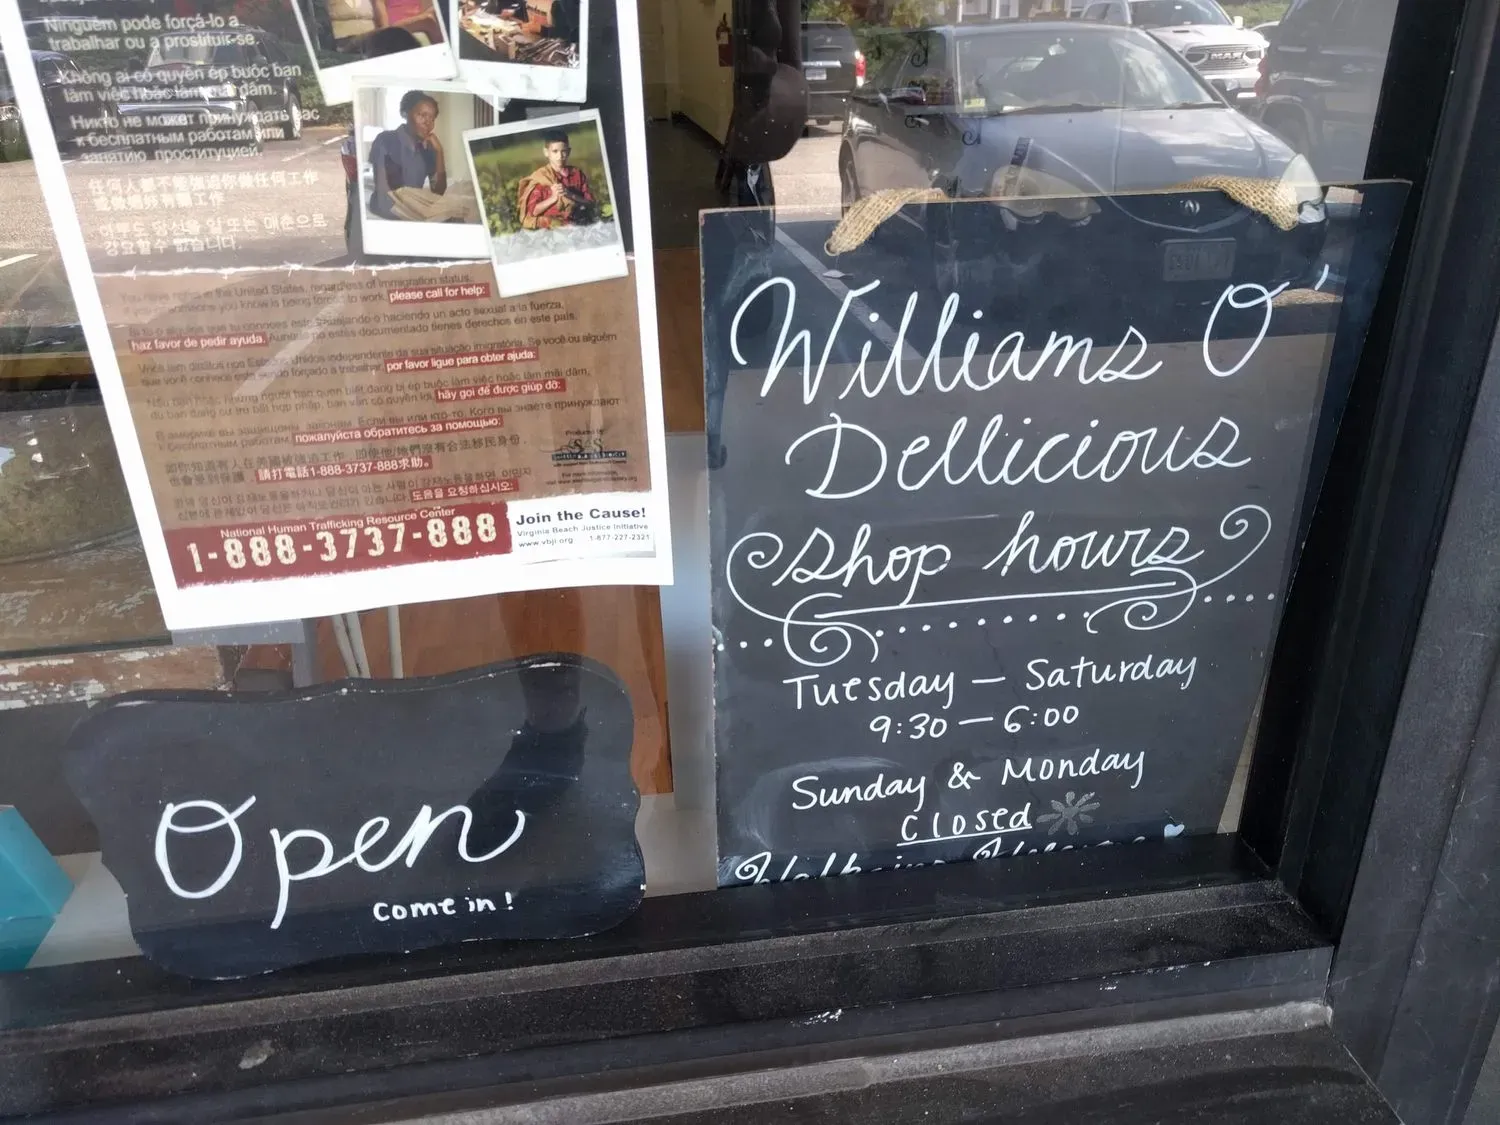 Ninguém pode forçá-lo a
trabalhar ou a prostituir-se.
Không ai có quyền ép buộc bạn
làm việc hoặc làm mại dâm.
Никто не может принуждать вас
к бесплатным работам или
занятию проституцией.
任何人都不能強迫你做任何工作
或做娼妓有關工作
아무도 당신을 일 또는 매춘으로
강요할수 없습니다.
in the United States, regardless of immigration status.
someone you know is being forced to work, please call for help:
Si tu o alguien que tu conoces este trabajando o haciendo un acto sexual a la fuerza,
haz favor de pedir ayuda. Aunque no estes documentado tienes derechos en este país.
Você tem direitos nos Estados Unidos independente da sua situação imigratória. Se você ou alguém
que você conhece está sendo forçado a trabalhar, por favor ligue para obter ajuda:
Nếu bạn hoặc những người bạn quen biết đang bị ép buộc làm việc hoặc làm mại dâm,
dù bạn đang cư trú bất hợp pháp, bạn vẫn có quyền lợi, hãy gọi để được giúp đỡ:
В америке вы защищены законом. Если вы или кто-то, Кого вы знаете принуждают
к бесплатным работам, пожалуйста обратитесь за помощью:
如你知道有人在美國被強迫工作，即使他/她們沒有合法移民身份，
也會受到保護，請打電話1-888-3737-888求助。
도움을 요청하십시오:
Produced by
National Human Trafficking Resource Center
1-888-3737-888
Join the Cause!
Virginia Beach Justice Initiative
www.vbji.org 1-877-227-2321
Open
come in!
Williams O'
Dellicious
shop hours
Tuesday — Saturday
9:30 — 6:00
Sunday & Monday
Closed